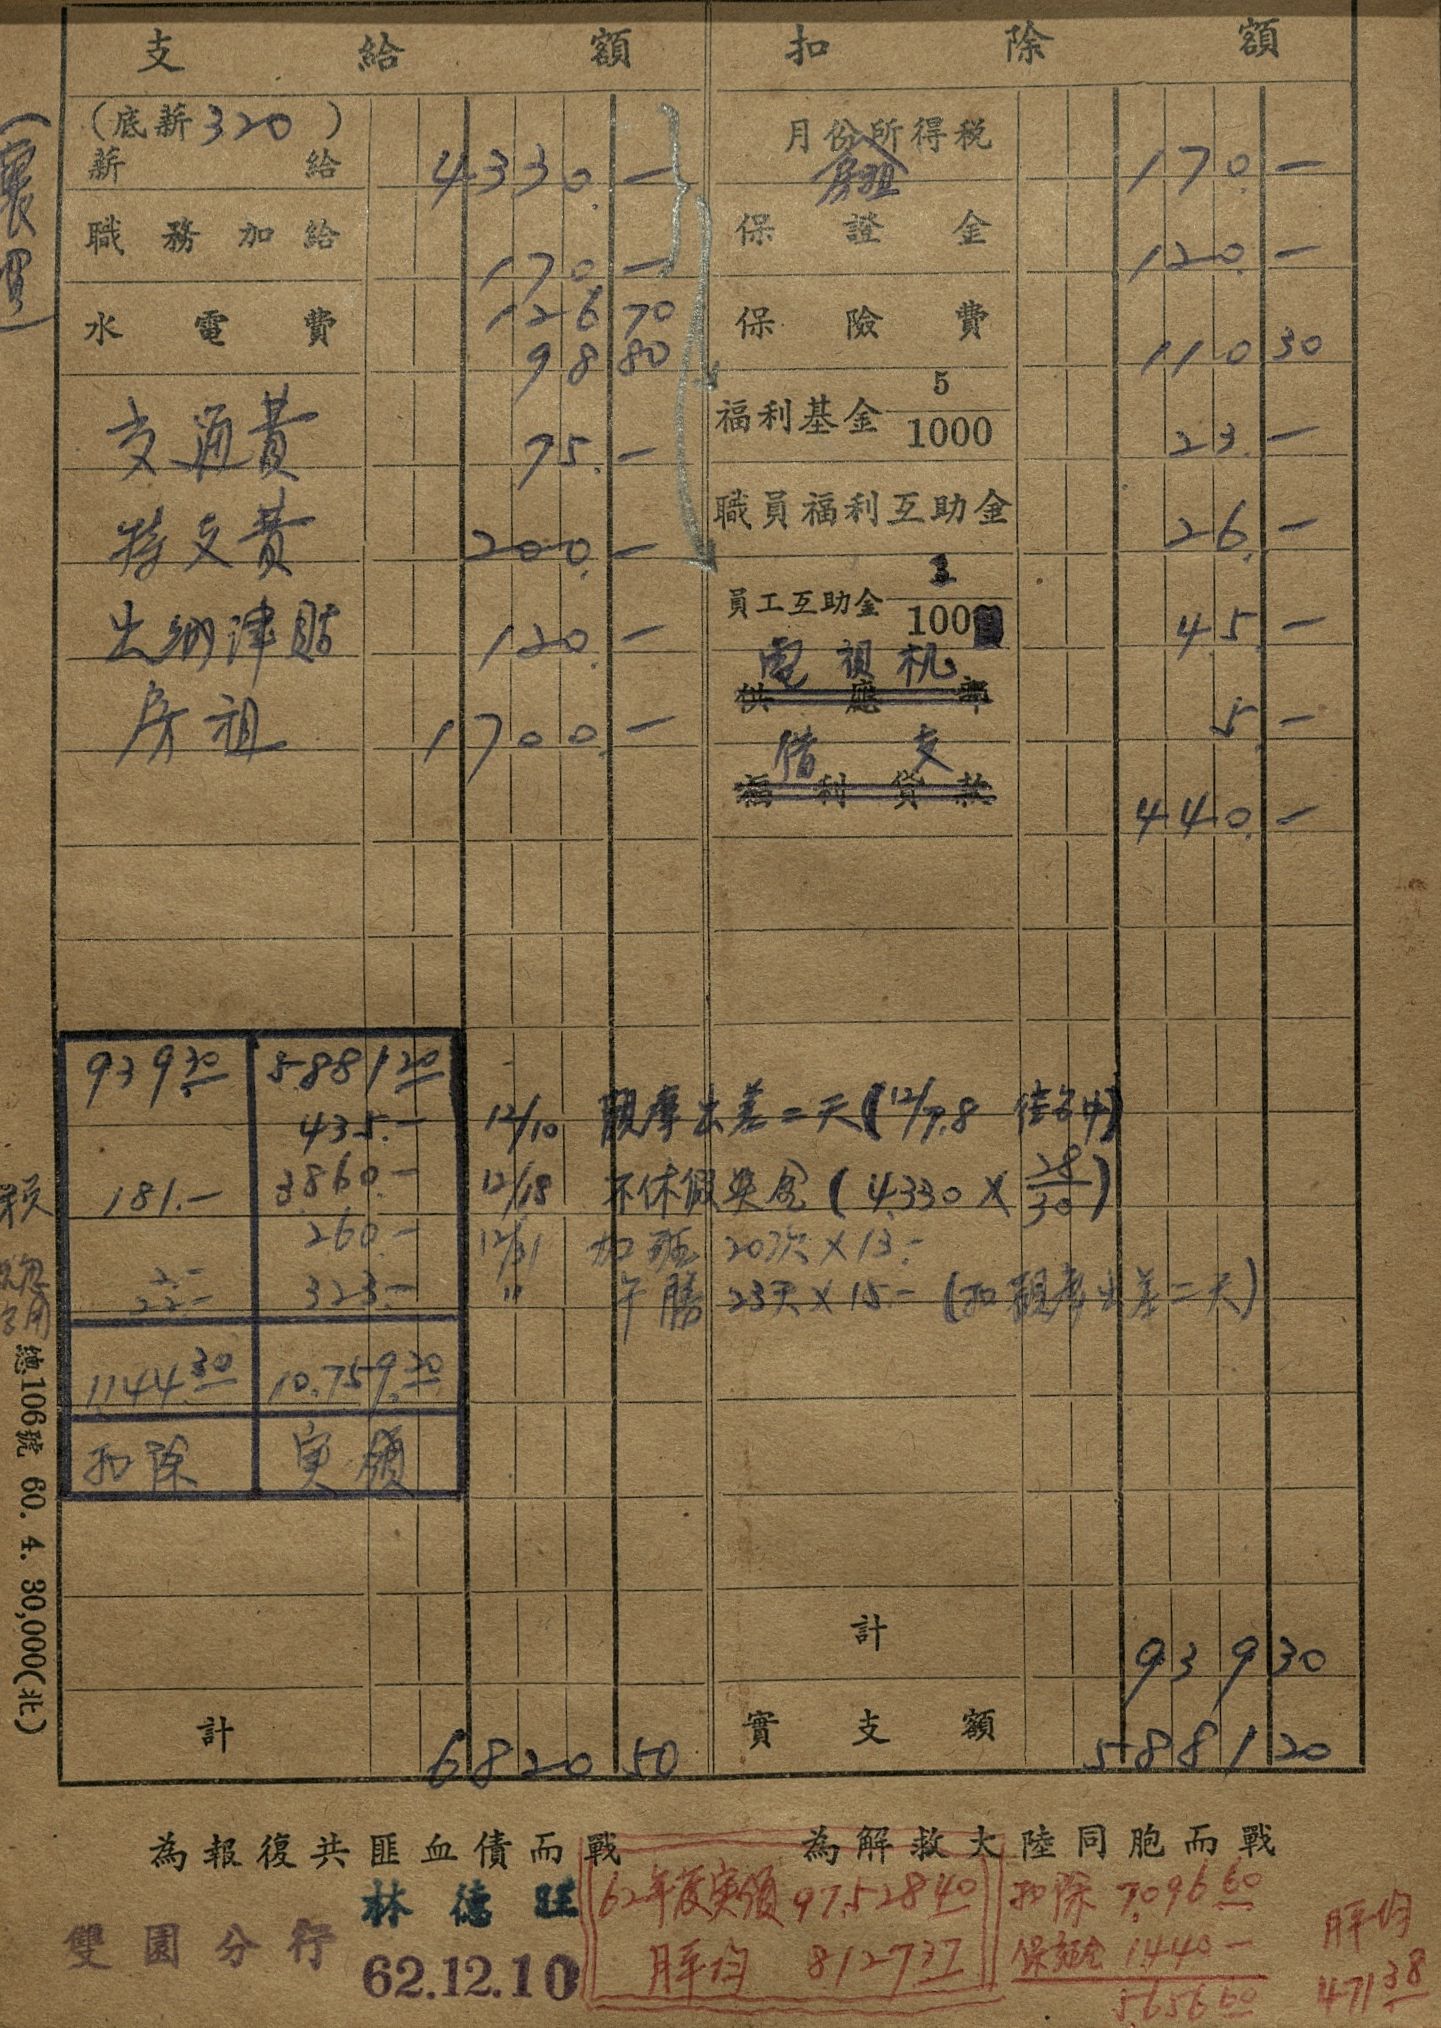 支給額 扣除額
(底薪320)
薪給 4330.—
月份所得稅
房租 170.—
職務加給 170.—
保證金 120.—
水電費 126.70
98.80
保險費 110.30
交通費 75.—
福利基金 5/1000 23.—
特支費 200.—
職員福利互助金 26.—
出納津貼 120.—
員工互助金 1/100 45.—
房租 1700.—
電視机
供應部 5.—
借支
福利貸款 440.—
939.30 5881.20
435.— 12/10 觀摩出差二天(12/7.8
181.— 3860.— 12/18 不休假奬金(4330×28/30)
260.— 12/31 加班 20次×13.—
22.— 323.— 〃 午膳 23天×15.— (扣觀摩出差二天)
1144.30 10.759.20
扣除 実領
計 939.30
計 6820.50
實支額 5881.20
總106號 60. 4. 30,000(北)
為報復共匪血債而戰 為解救大陸同胞而戰
雙園分行
林德旺
62.12.10
62年度実領 97,528.40
月平均 8127.37
扣除 7,096.60
保証金 1440.—
5,656.60
月平均
471.38